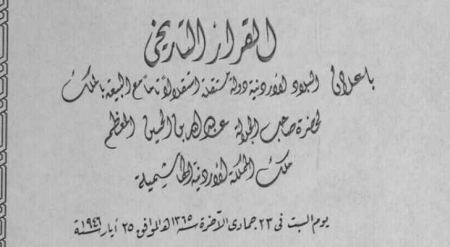 القرار التاريخي
باعلان البلاد الأردنية دولة مستقلة استقلالا تاما مع البيعة بالملك
لحضرة صاحب الجلالة عبدالله بن الحسين المعظم
ملك المملكة الأردنية الهاشمية
يوم السبت في ٢٣ جمادى الآخرة سنة ١٣٦٥ هـ الموافق ٢٥ أيار سنة ١٩٤٦